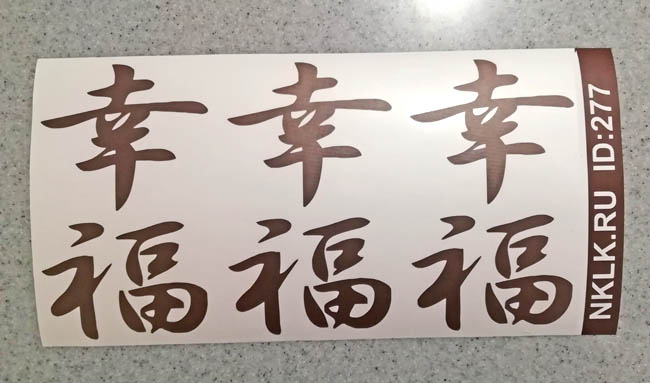 幸 幸 幸
福 福 福
NKLK.RU ID:277